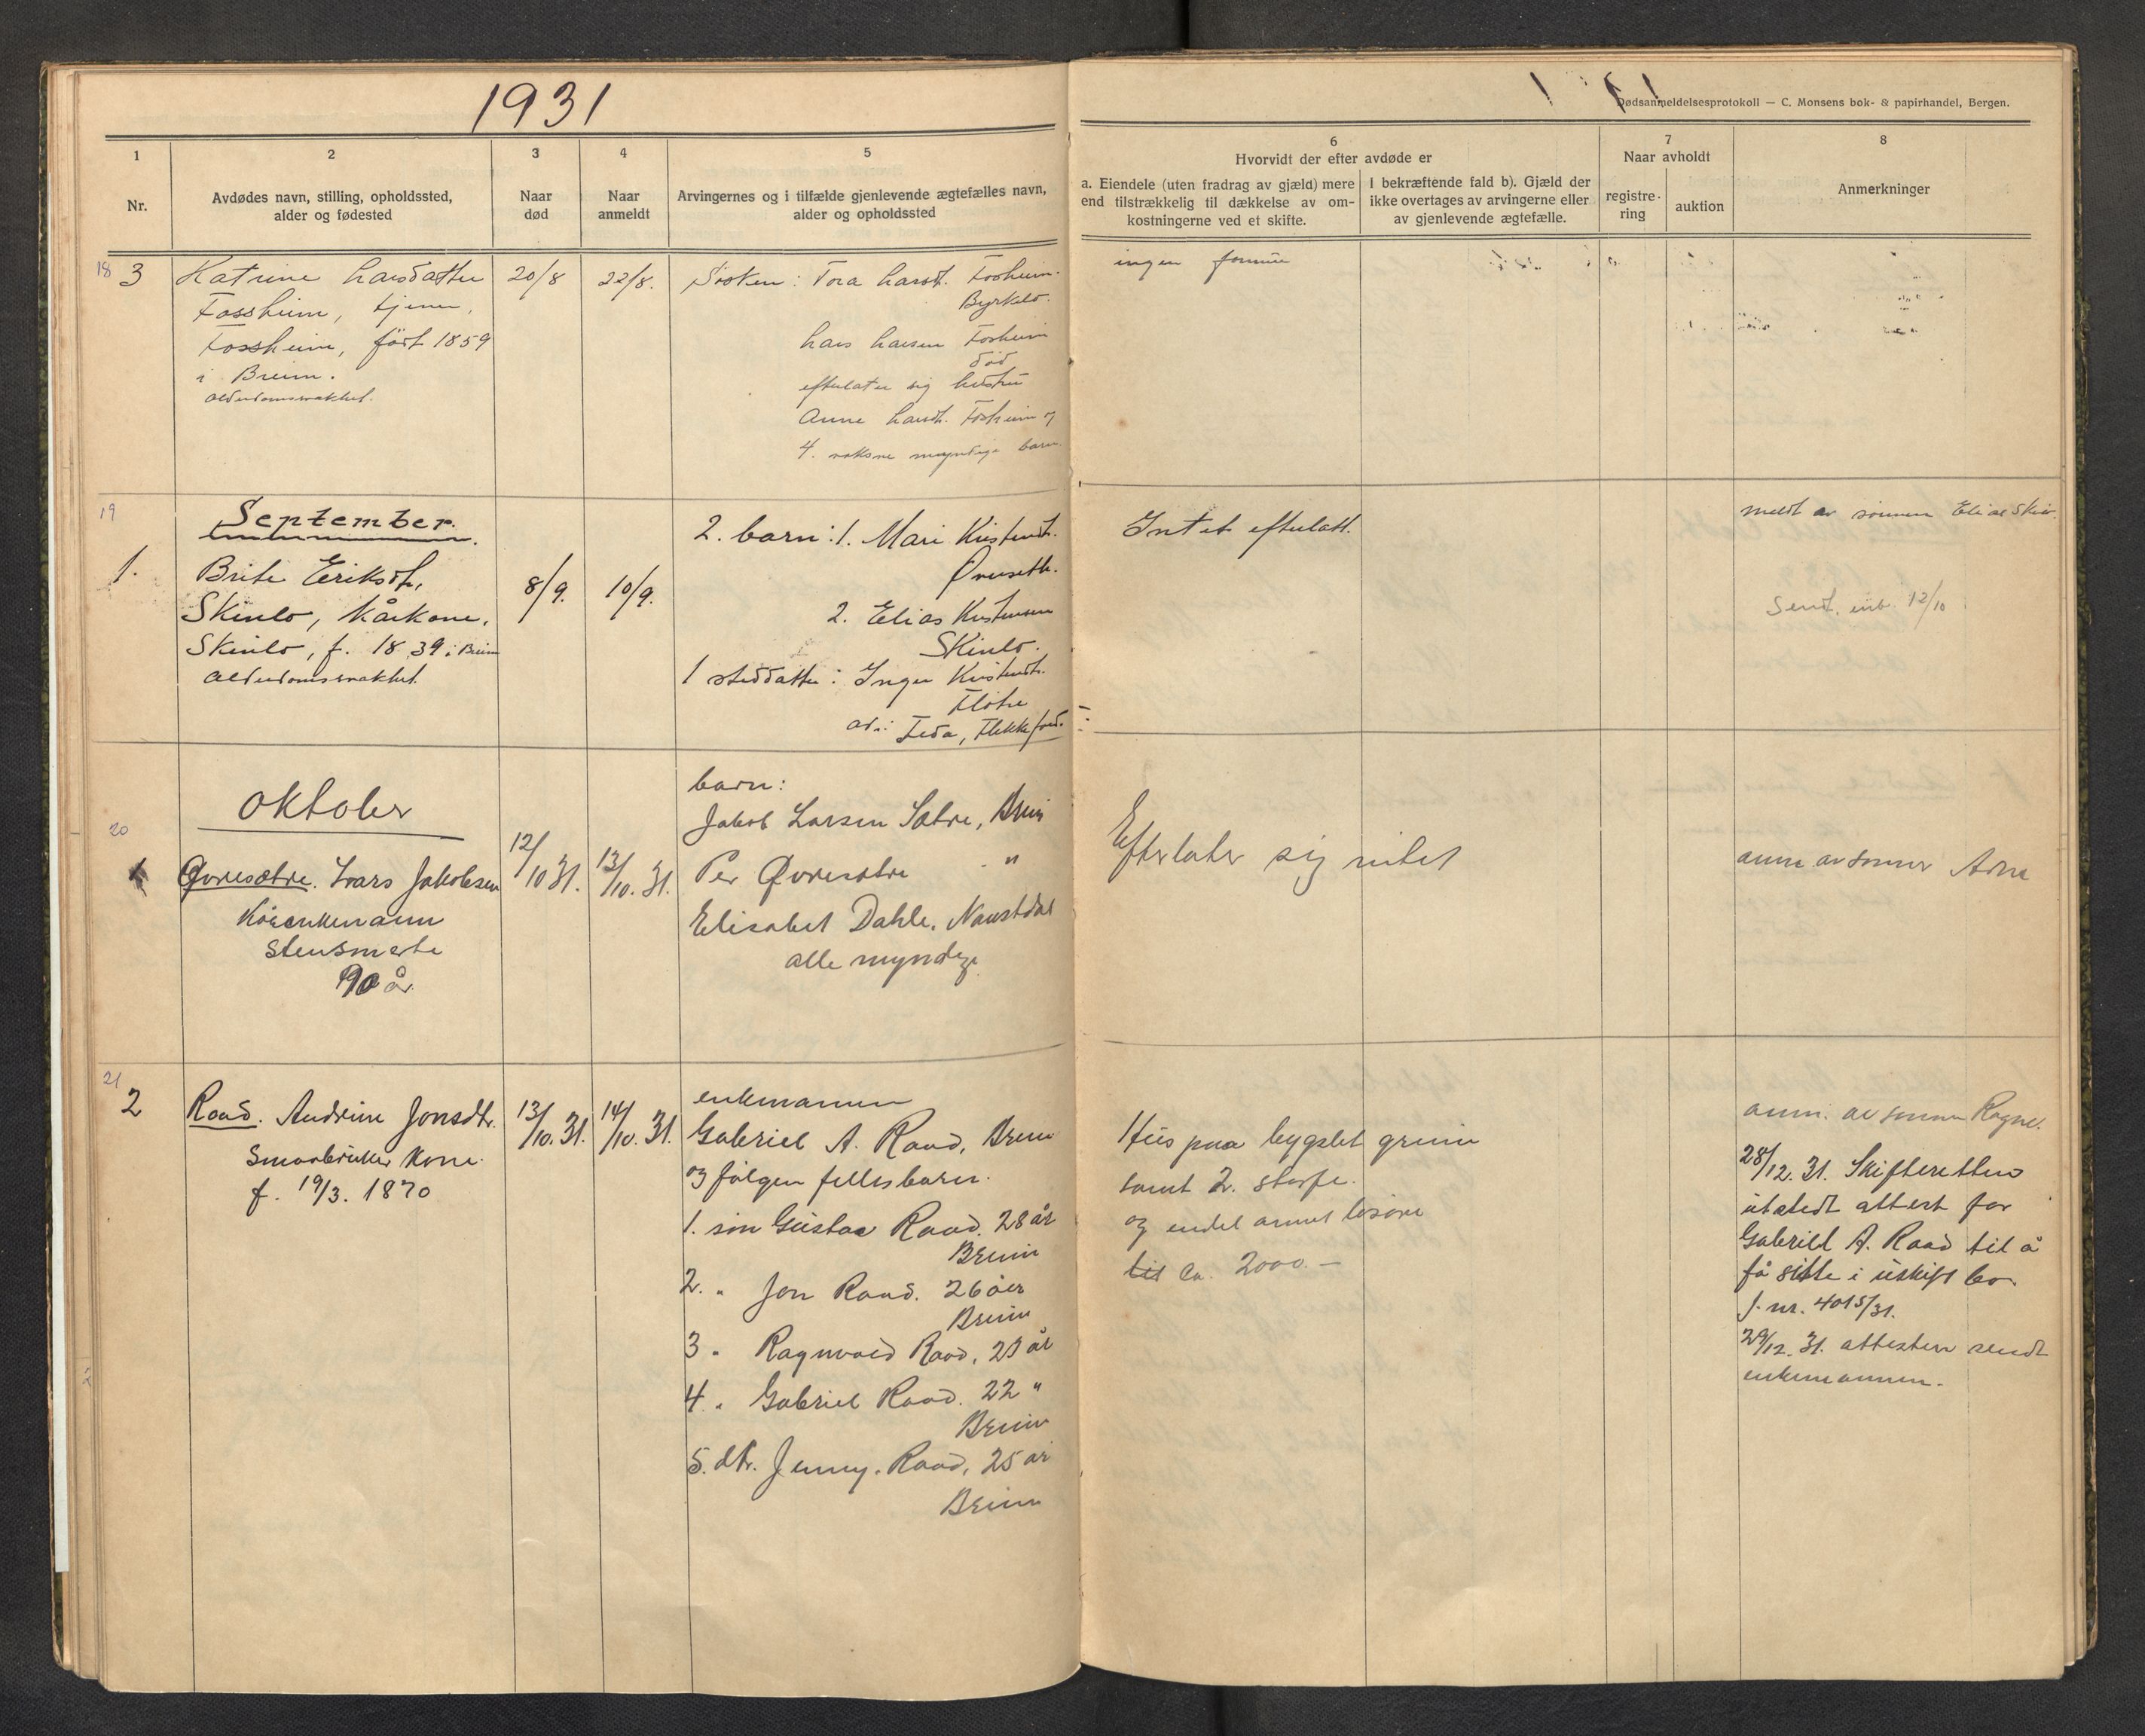 1931
Dødsanmeldelsesprotokoll — C. Monsens bok- & papirhandel, Bergen.
1
2
3
4
5
6
7
8
Nr.
Avdødes navn, stilling, opholdssted,
alder og fødested
Naar
død
Naar
anmeldt
Arvingernes og i tilfælde gjenlevende ægtefælles navn,
alder og opholdssted
Hvorvidt der efter avdøde er
a. Eiendele (uten fradrag av gjæld) mere
end tilstrækkelig til dækkelse av om-
kostningerne ved et skifte.
I bekræftende fald b). Gjæld der
ikke overtages av arvingerne eller
av gjenlevende ægtefælle.
Naar avholdt
registre-
ring
auktion
Anmerkninger
18 3
Katrine Larsdatter
Fossheim, tjener,
Fossheim, født 1859
i Breim.
alderdomssvakhet.
20/8
22/8.
Søsken: Tora Larsdt. Fosheim
Byrkelo.
Lars Larsen Fosheim
død
efterlater sig hustru
Anne Larsdt. Fosheim og
4. voksne myndige barn.
ingen formue
19
September.
1.
Brite Eriksdt.
Skinlo, kårkone,
Skinlo, f. 1839 i Breim
Alderdomssvakhet.
8/9.
10/9.
2. barn: 1. Mari Kristendt.
2. Elias Kristensen
Skinlo.
1 steddatter: Inger Kristendt.
Flotre
adr: Feda, Flekkefjord.
Intet efterlatt.
meldt av sønnen Elias Skin.
Sendt. inb. 12/10
20
Oktober
1
Øvresætre. Lars Jakobsen
Kårenkemann
90 år.
12/10 31.
13/10. 31.
barn:
Jakob Larsen Sætre, Breim
Per Øvresætre "
Elisabet Dahle, Naustdal
alle myndige
Efterlater sig intet
anm av sønner Arne
21
2
Raad. Andrine Jonsdtr.
Smaabruker kone.
f. 19/3. 1870
13/10. 31.
14/10. 31.
enkemannen
Gabriel A. Raad, Breim
og følgen fellesbarn.
1. søn Gustav Raad. 28 år
Breim
2. " Jon Raad. 26 år
Breim
3 " Ragnvald Raad, 23 år
4. " Gabriel Raad. 22 "
Breim
5. dtr. Jenny. Raad, 25 år
Breim
Hus paa bygslet grunn
samt 2. storfe.
og endel annet løsøre
til Ca. 2000.—
anm. av sønnen Ragnv.
28/12. 31. Skifteretten
utstedt attest for
Gabriel A. Raad til å
få sitte i uskift bo.
J. nr. 4015/31.
29/12. 31. attesten sendt
enkemannen.